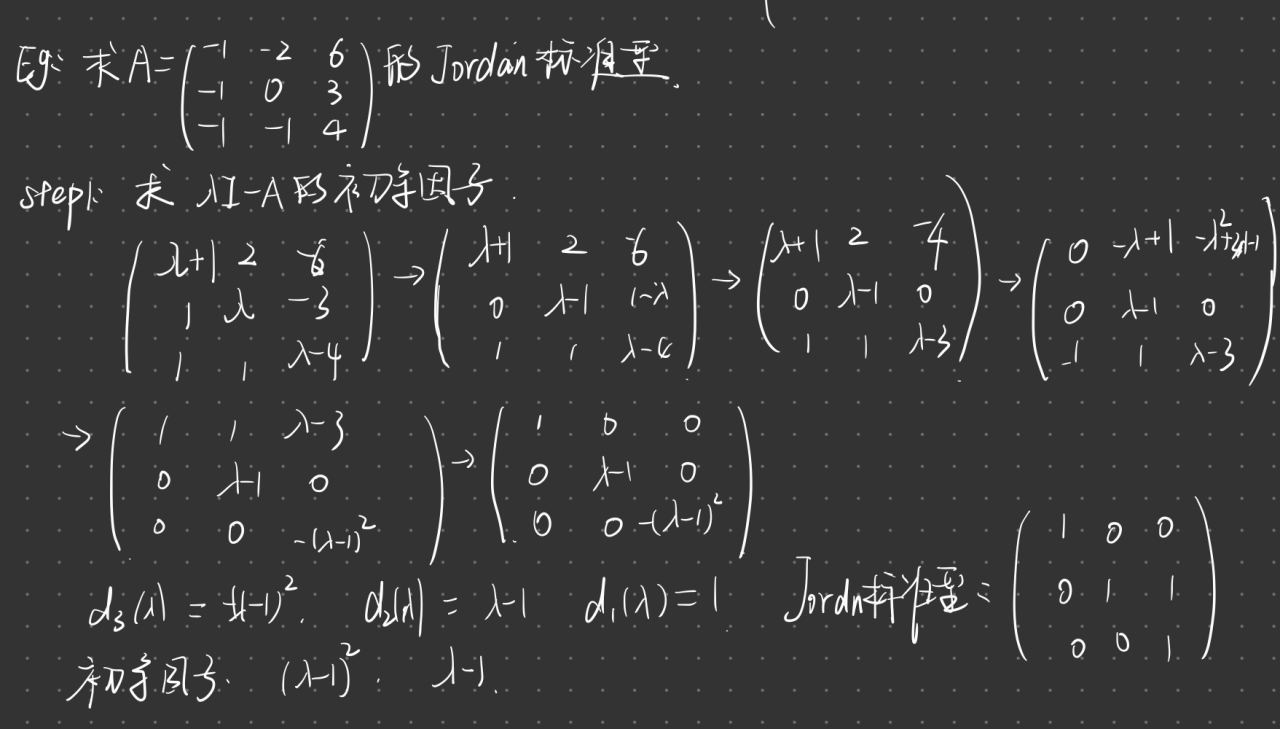 Eg: 求A=(-1 -2 6; -1 0 3; -1 -1 4) 的 Jordan 标准型.
step1: 求 λI-A 的初等因子.
(λ+1 2 -6; 1 λ -3; 1 1 λ-4) → (λ+1 2 -6; 0 λ-1 1-λ; 1 1 λ-4) → (λ+1 2 -4; 0 λ-1 0; 1 1 λ-3) → (0 -λ+1 ; 0 λ-1 0; 1 1 λ-3)
→ (1 1 λ-3; 0 λ-1 0; 0 0 -(λ-1)²) → (1 0 0; 0 λ-1 0; 0 0 -(λ-1)²)
d₃(λ) = (λ-1)². d₂(λ) = λ-1 d₁(λ) = 1 Jordn标准型: (1 0 0; 0 1 1; 0 0 1)
初等因子: (λ-1)². λ-1.